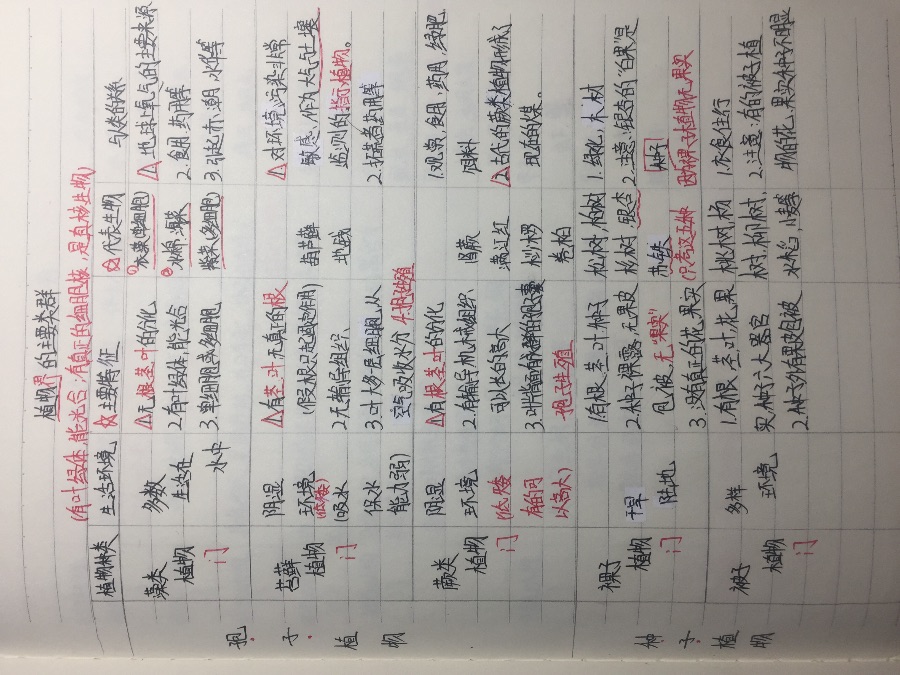 植物界的主要类群
(有叶绿体,能光合;有真正的细胞核,是真核生物)
植物种类 生活环境 主要特征 代表生物 与人类的关系
孢子植物
藻类植物门
多数生活在水中
△无根茎叶的分化
2.有叶绿体,能光合
3.单细胞或多细胞
①衣藻(单细胞)
②水绵,海藻
紫菜(多细胞)
△地球上氧气的主要来源
2.食用、药用等
3.引起赤潮、水华等
苔藓植物门
阴湿环境
(低矮)
(吸水保水能力弱)
△有茎、叶,无真正的根
(假根只起固定作用)
2.无输导组织、
3.叶大多是一层细胞,从
空气吸收水分 4.孢子生殖
葫芦藓
地钱
△对环境污染非常
敏感,作为大气、土壤
监测的指示植物。
2.药用等
蕨类植物门
阴湿环境
(低矮
有的可
以高大)
△有根茎叶的分化
2.有输导和机械组织、
可以长的高大
3.叶背面有
孢子生殖
肾蕨
满江红
桫椤
卷柏
1.观赏,食用,药用,绿肥,
饲料
△古代的蕨类植物形成了
现在的煤。
种子植物
裸子植物门
干旱
陆地
1.有根、茎、叶、种子
2.种子裸露,无果皮
包被,无“果实”
3.没有真正的花、果实
松树,柏树
杉树,银杏
苏铁
(只考这五种)
1.绿化,木材
2.注意:银杏的“白果”是
种子
因为裸子植物无果实
被子植物门
多样
环境
1.有根、茎、叶、花、果
实、种子六大器官
2.种子外有果皮包被
桃树,杨
树,柳树,
水稻,小麦等
1.衣食住行
2.注意:有的被子植
物的花、果实、种子不明显